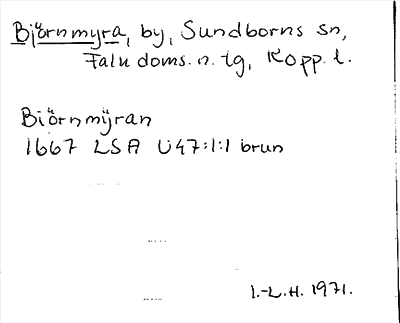 Björnmyra, by, Sundborns sn,
Falu doms. n. tg, Kopp. l.
Biörnmÿran
1667 LSA U47:1:1 brun
I.-L.H. 1971.